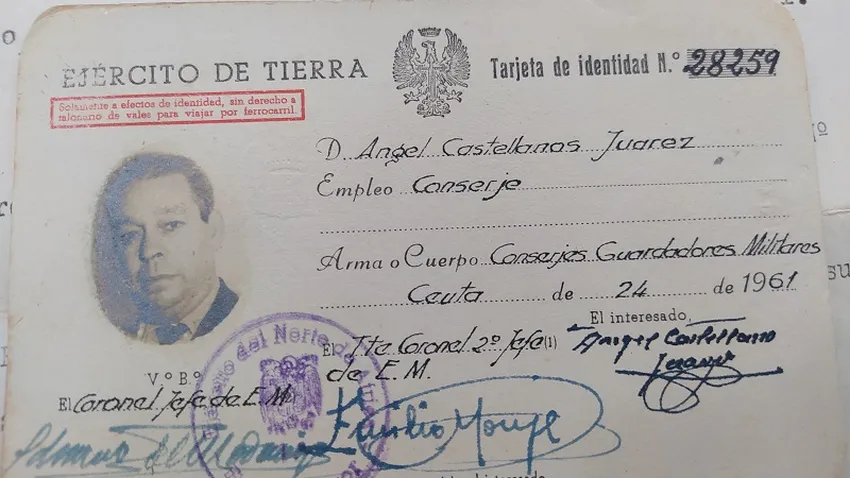 EJÉRCITO DE TIERRA
Tarjeta de identidad N.º 28259
Solamente a efectos de identidad, sin derecho a
talonario de vales para viajar por ferrocarril.
D. Angel Castellanos Juarez
Empleo Conserje
Arma o Cuerpo Conserjes Guardadores Militares
Ceuta de 24 de 1961
El interesado,
El Tte Coronel 2º Jefe (1)
de E.M.
Angel Castellano
Juarez
Vº Bº
El Coronel Jefe de E.M.
del Norte de
Emilio Monje
interesado